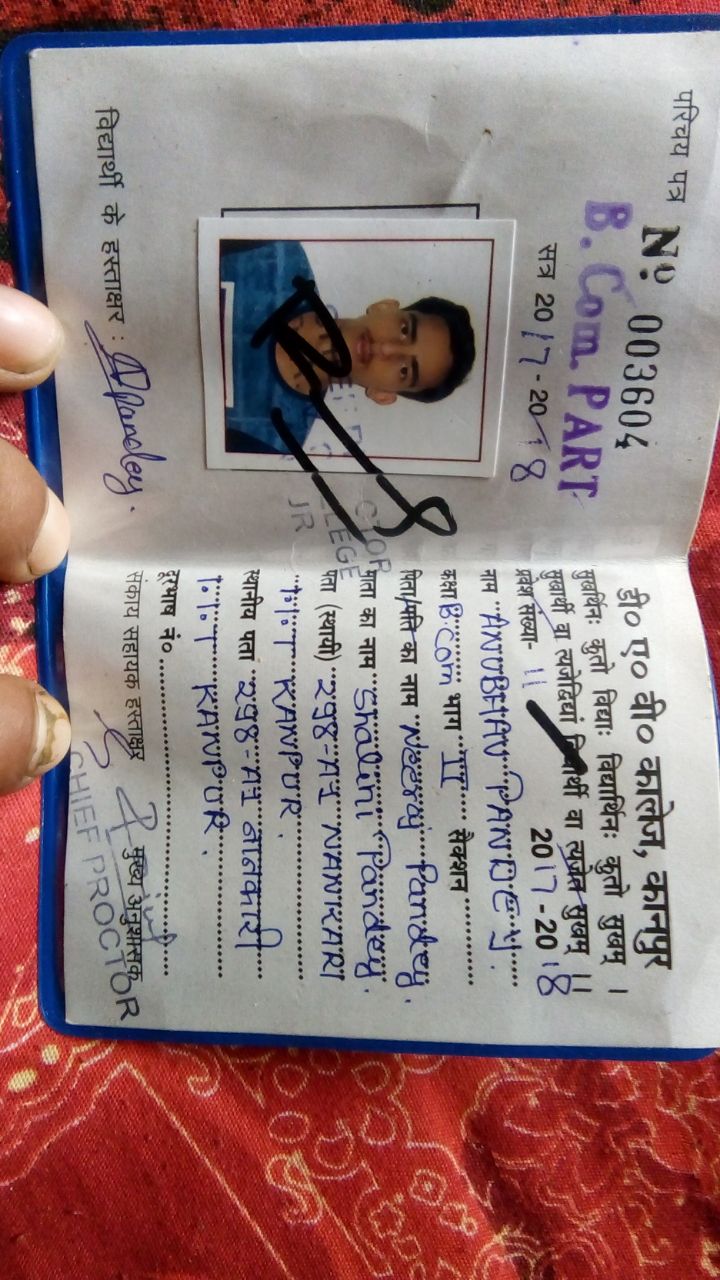 परिचय पत्र
Nº 003604
B. Com. PART
सत्र 2017 - 2018
विद्यार्थी के हस्ताक्षर : APandey.
डी० ए० वी० कालेज, कानपुर
सुखार्थिनः कुतो विद्याः विद्यार्थिनः कुतो सुखम् ।
सुखार्थी वा त्यजेद्विद्यां विद्यार्थी वा त्यजेत सुखम् ॥
प्रवेश संख्या- 11 2017 - 2018
नाम ANUBHAV PANDEY.
कक्षा B.Com भाग II सेक्शन
पिता/पति का नाम Neeraj Pandey.
माता का नाम Shalini Pandey.
पता (स्थायी) 298-A1 NANKARI
I.I.T KANPUR.
स्थानीय पता 298-A1 नानकारी
I.I.T KANPUR.
दूरभाष नं०
संकाय सहायक हस्ताक्षर मुख्य अनुशासक
CHIEF PROCTOR